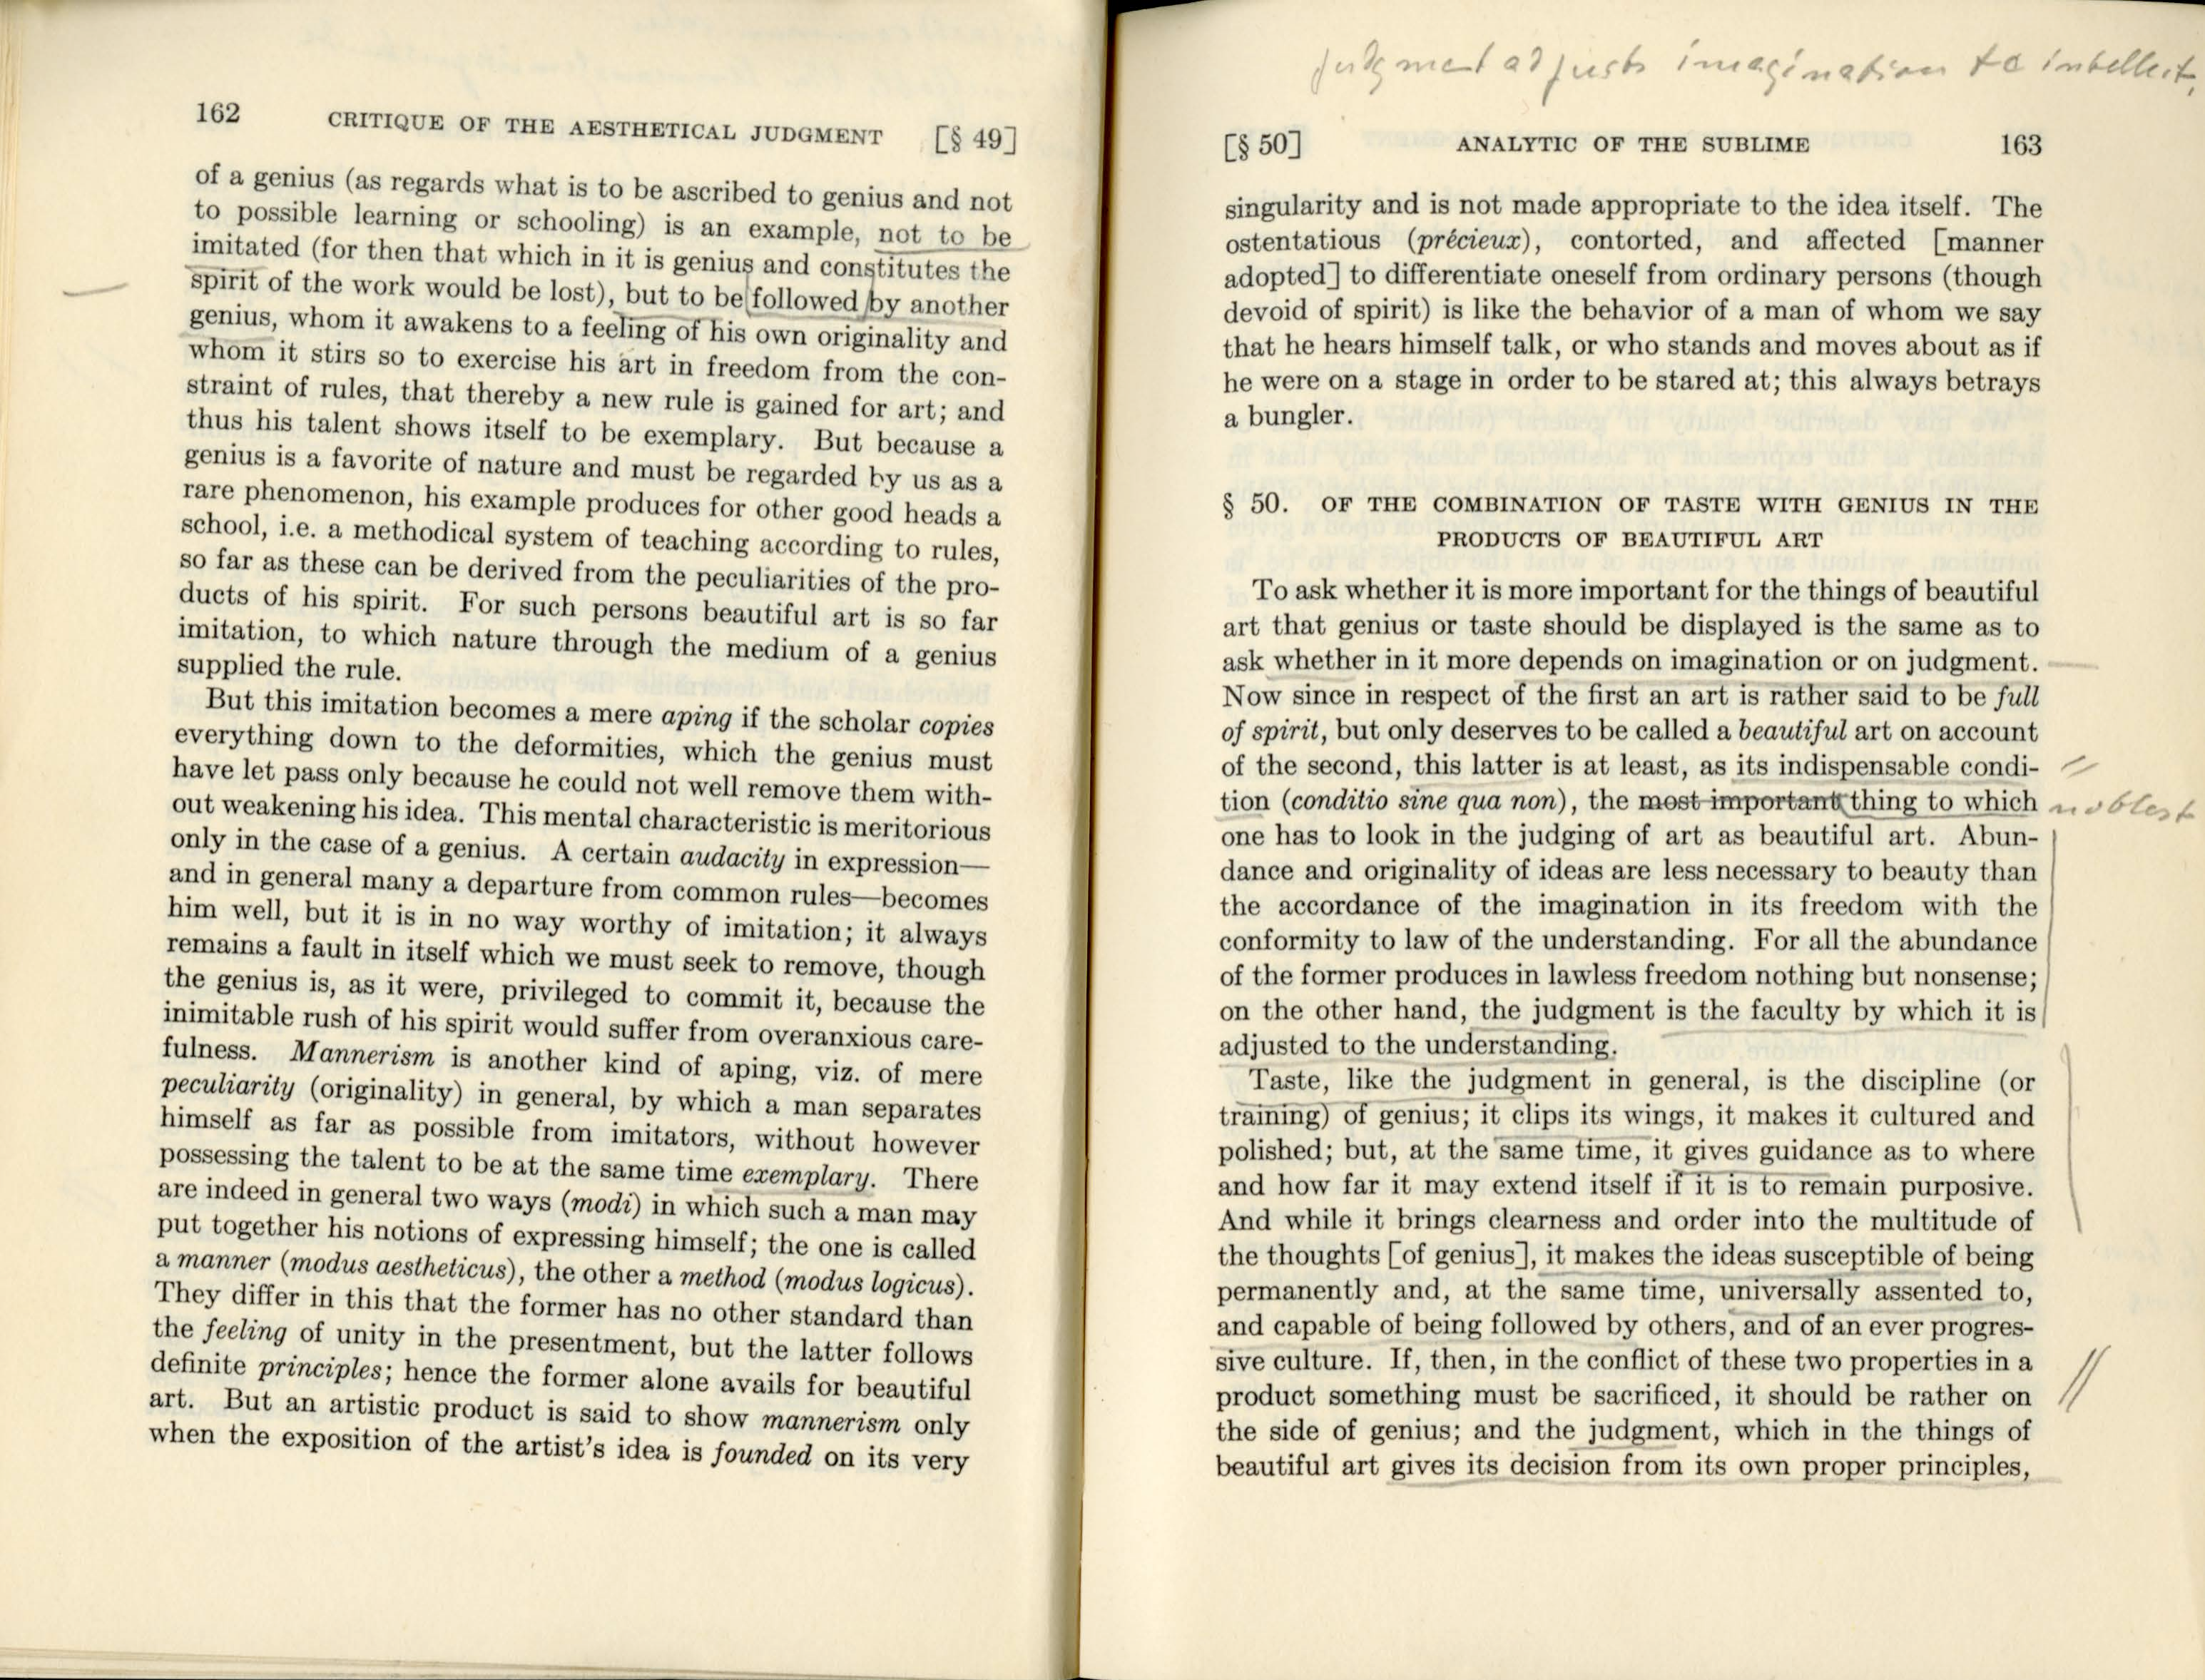 162 CRITIQUE OF THE AESTHETICAL JUDGMENT [§ 49]
of a genius (as regards what is to be ascribed to genius and not
to possible learning or schooling) is an example, not to be
imitated (for then that which in it is genius and constitutes the
spirit of the work would be lost), but to be followed by another
genius, whom it awakens to a feeling of his own originality and
whom it stirs so to exercise his art in freedom from the con-
straint of rules, that thereby a new rule is gained for art; and
thus his talent shows itself to be exemplary. But because a
genius is a favorite of nature and must be regarded by us as a
rare phenomenon, his example produces for other good heads a
school, i.e. a methodical system of teaching according to rules,
so far as these can be derived from the peculiarities of the pro-
ducts of his spirit. For such persons beautiful art is so far
imitation, to which nature through the medium of a genius
supplied the rule.
But this imitation becomes a mere aping if the scholar copies
everything down to the deformities, which the genius must
have let pass only because he could not well remove them with-
out weakening his idea. This mental characteristic is meritorious
only in the case of a genius. A certain audacity in expression—
and in general many a departure from common rules—becomes
him well, but it is in no way worthy of imitation; it always
remains a fault in itself which we must seek to remove, though
the genius is, as it were, privileged to commit it, because the
inimitable rush of his spirit would suffer from overanxious care-
fulness. Mannerism is another kind of aping, viz. of mere
peculiarity (originality) in general, by which a man separates
himself as far as possible from imitators, without however
possessing the talent to be at the same time exemplary. There
are indeed in general two ways (modi) in which such a man may
put together his notions of expressing himself; the one is called
a manner (modus aestheticus), the other a method (modus logicus).
They differ in this that the former has no other standard than
the feeling of unity in the presentment, but the latter follows
definite principles; hence the former alone avails for beautiful
art. But an artistic product is said to show mannerism only
when the exposition of the artist's idea is founded on its very
judgment adjusts imagination to intellect,
[§ 50] ANALYTIC OF THE SUBLIME 163
singularity and is not made appropriate to the idea itself. The
ostentatious (précieux), contorted, and affected [manner
adopted] to differentiate oneself from ordinary persons (though
devoid of spirit) is like the behavior of a man of whom we say
that he hears himself talk, or who stands and moves about as if
he were on a stage in order to be stared at; this always betrays
a bungler.
§ 50. OF THE COMBINATION OF TASTE WITH GENIUS IN THE
PRODUCTS OF BEAUTIFUL ART
To ask whether it is more important for the things of beautiful
art that genius or taste should be displayed is the same as to
ask whether in it more depends on imagination or on judgment.
Now since in respect of the first an art is rather said to be full
of spirit, but only deserves to be called a beautiful art on account
of the second, this latter is at least, as its indispensable condi-
tion (conditio sine qua non), the most important thing to which noblest
one has to look in the judging of art as beautiful art. Abun-
dance and originality of ideas are less necessary to beauty than
the accordance of the imagination in its freedom with the
conformity to law of the understanding. For all the abundance
of the former produces in lawless freedom nothing but nonsense;
on the other hand, the judgment is the faculty by which it is
adjusted to the understanding.
Taste, like the judgment in general, is the discipline (or
training) of genius; it clips its wings, it makes it cultured and
polished; but, at the same time, it gives guidance as to where
and how far it may extend itself if it is to remain purposive.
And while it brings clearness and order into the multitude of
the thoughts [of genius], it makes the ideas susceptible of being
permanently and, at the same time, universally assented to,
and capable of being followed by others, and of an ever progres-
sive culture. If, then, in the conflict of these two properties in a
product something must be sacrificed, it should be rather on
the side of genius; and the judgment, which in the things of
beautiful art gives its decision from its own proper principles,